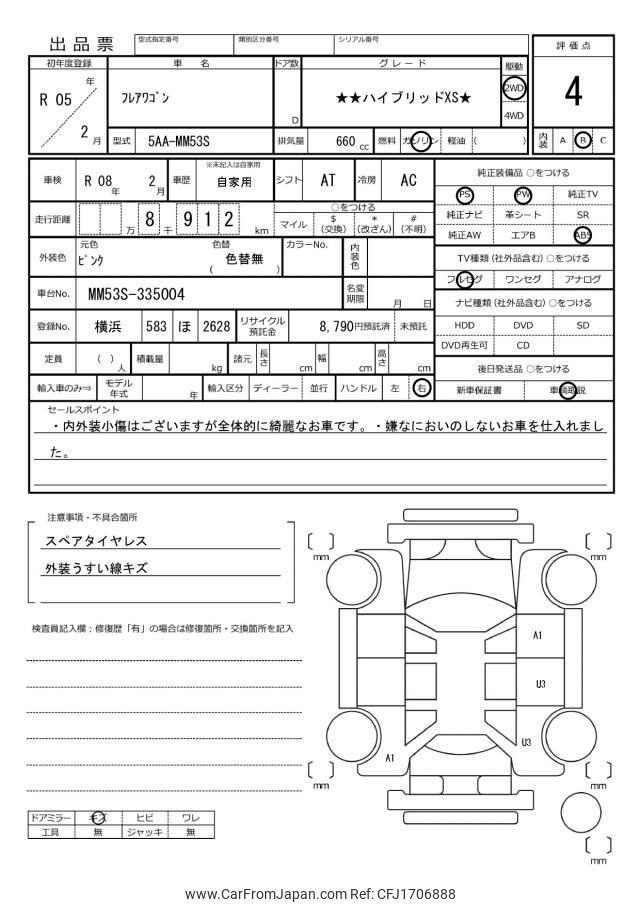 出品票
型式指定番号 類別区分番号 シリアル番号
評価点
4
初年度登録 車名 ドア数 グレード 駆動
R 05 年 2 月
フレアワゴン
D
★★ハイブリッドXS★
2WD
4WD
型式 5AA-MM53S 排気量 660 cc 燃料 ガソリン 軽油 ( )
内装 A B C
車検 R 08 年 2 月 車歴 ※未記入は自家用 自家用 シフト AT 冷房 AC
走行距離 万 8 千 9 1 2 km
○をつける
マイル $ (交換) * (改ざん) # (不明)
外装色 元色 ピンク 色替 ( 色替無 ) カラーNo. 内装色
車台No. MM53S-335004 名変期限 月 日
登録No. 横浜 583 ほ 2628 リサイクル預託金 8,790円預託済 未預託
定員 ( ) 人 積載量 kg 諸元 長さ cm 幅 cm 高さ cm
輸入車のみ⇒ モデル年式 年 輸入区分 ディーラー 並行 ハンドル 左 右
純正装備品 ○をつける
PS PW 純正TV
純正ナビ 革シート SR
純正AW エアB ABS
TV種類(社外品含む) ○をつける
フルセグ ワンセグ アナログ
ナビ種類(社外品含む) ○をつける
HDD DVD SD
DVD再生可 CD
後日発送品 ○をつける
新車保証書 車輌取説
セールスポイント
・内外装小傷はございますが全体的に綺麗なお車です。・嫌なにおいのしないお車を仕入れまし
た。
注意事項・不具合箇所
スペアタイヤレス
外装うすい線キズ
検査員記入欄：修復歴「有」の場合は修復箇所・交換箇所を記入
mm mm
A1
U3
U3
A1
mm mm
mm
ドアミラー キズ ヒビ ワレ
工具 無 ジャッキ 無
www.CarFromJapan.com Ref: CFJ1706888